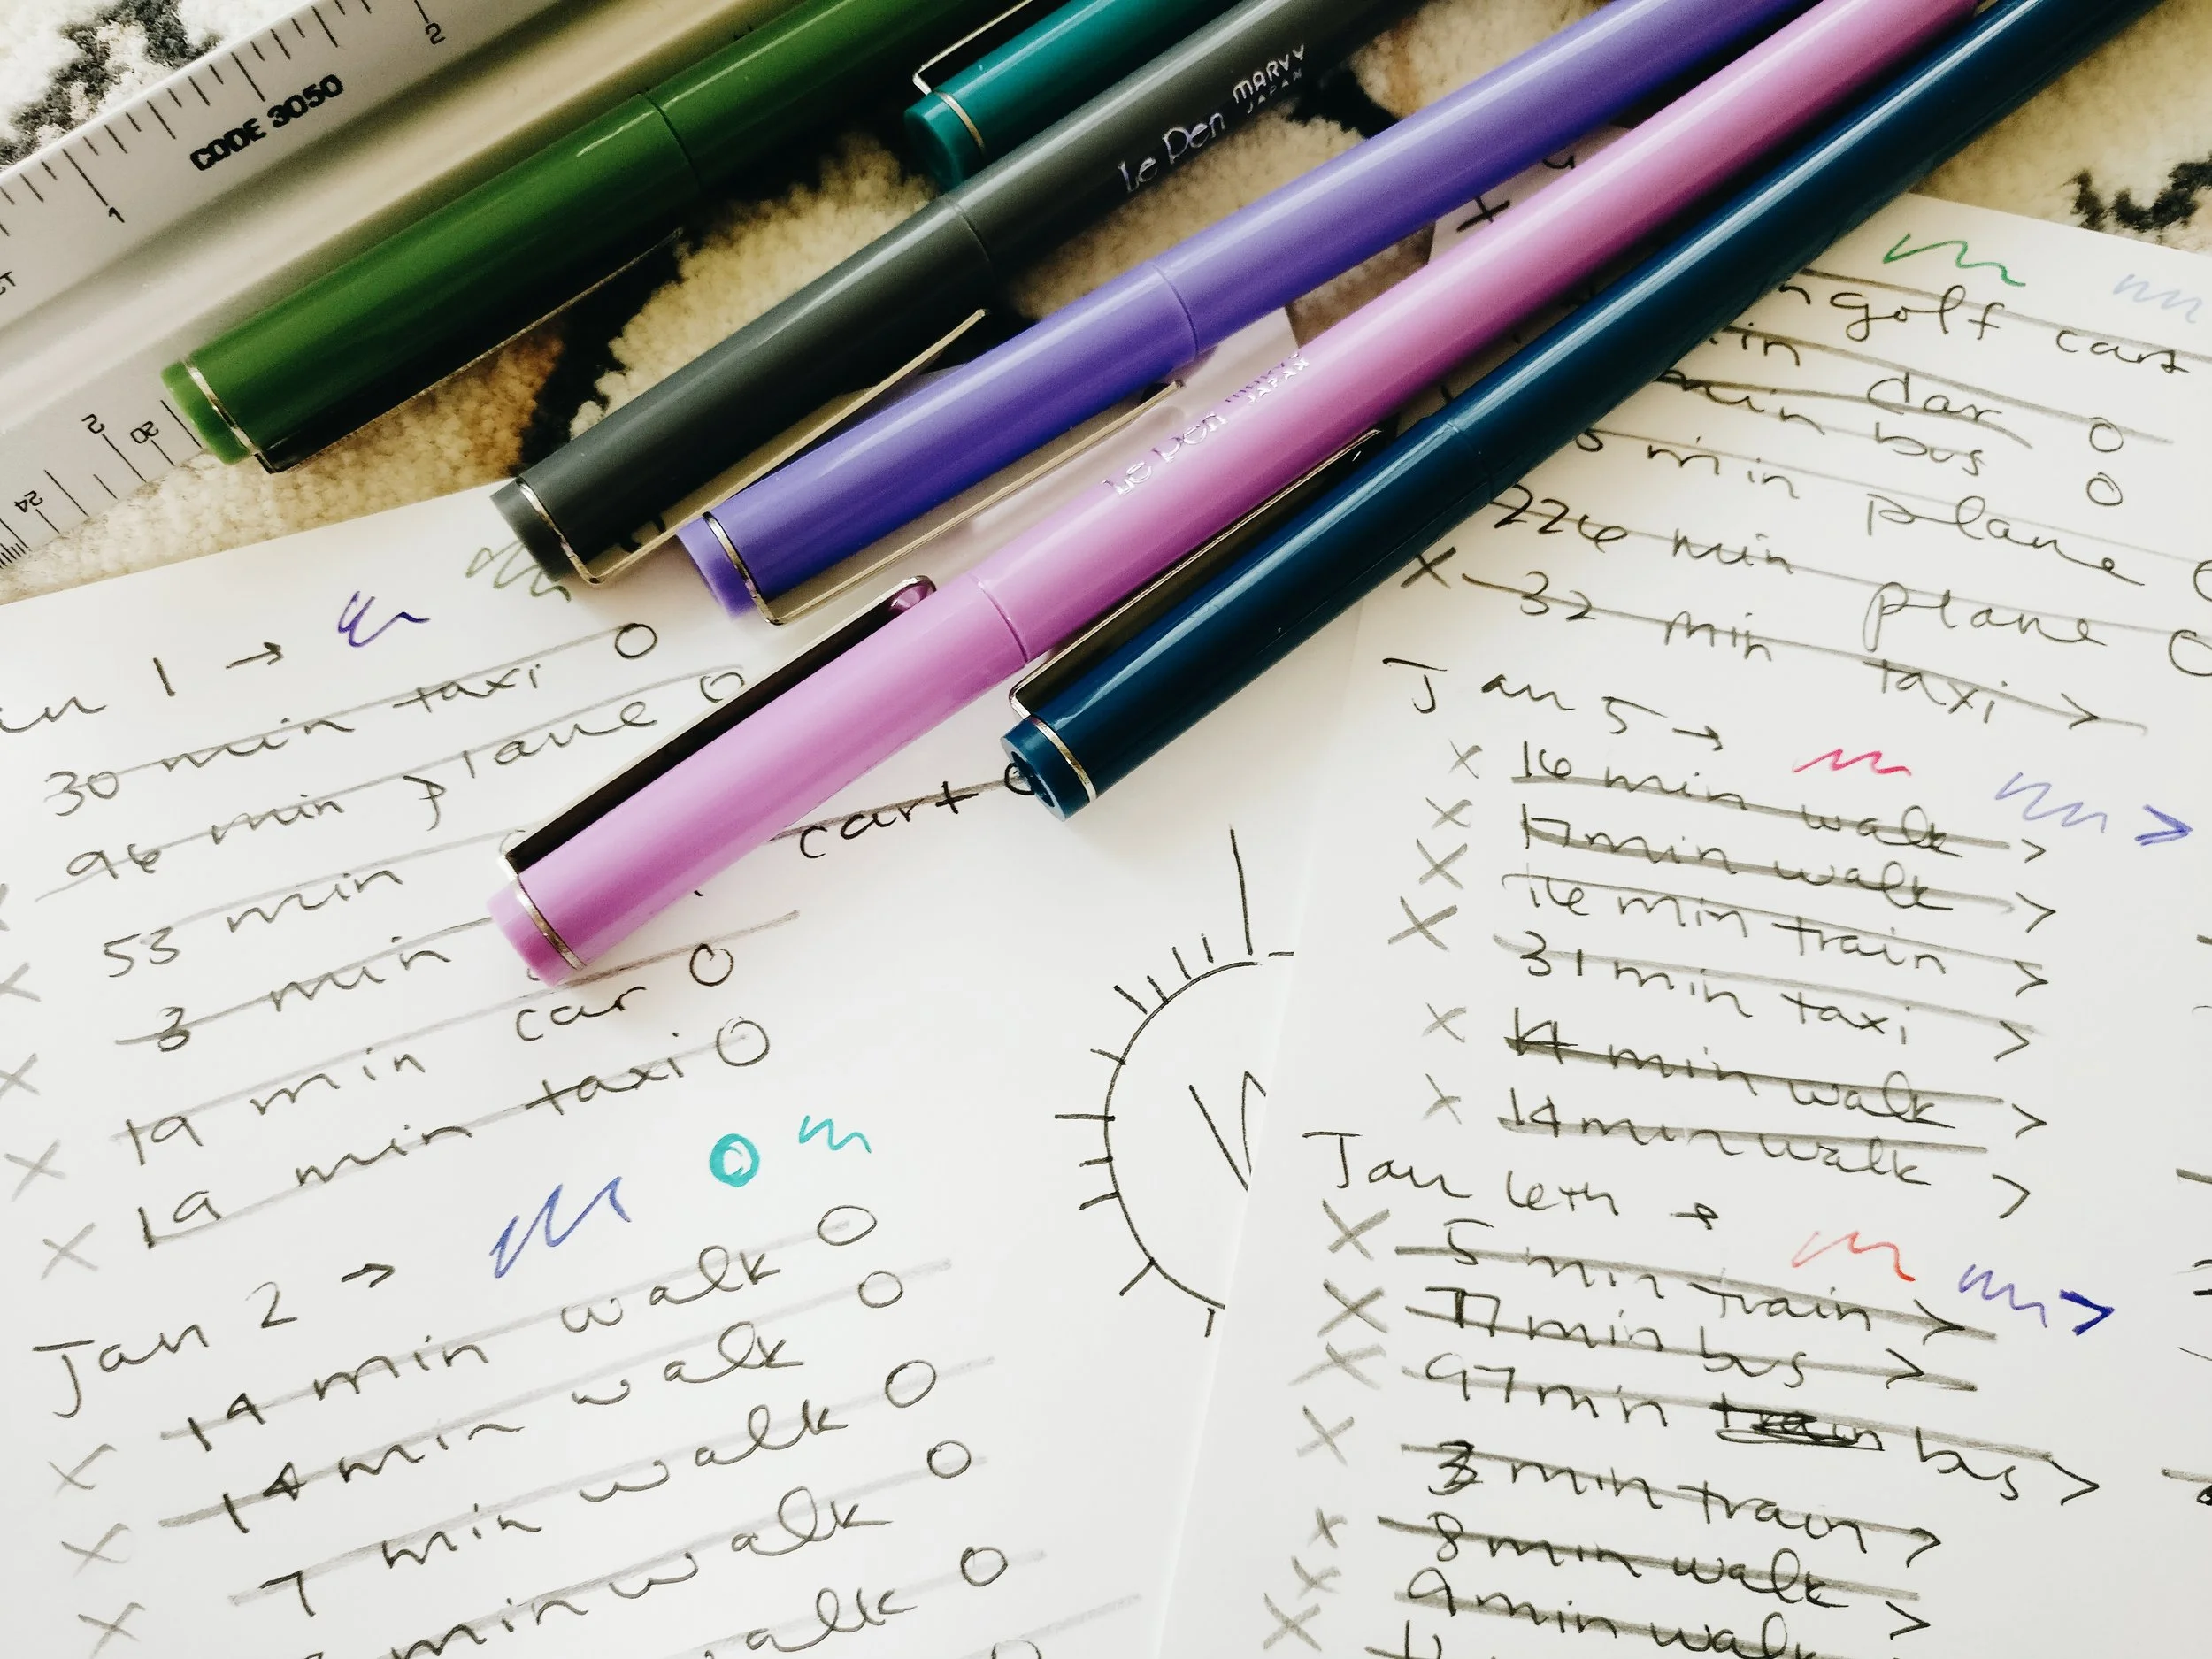 1
2
CODE 3050
2
20
24
Le Pen MARVY
JAPAN
Le Pen
JAPAN
1 →
30 min taxi O
96 min plane O
53 min
cart
3 min
19 min car O
19 min taxi O
Jan 2 →
14 min walk O
14 min walk O
7 min walk O
min walk O
walk O
golf cart
min car O
min bus O
min plane
226 min plane O
X 32 min taxi >
Jan 5 →
X 16 min walk >
X 17 min walk >
XX 16 min train >
X 31 min taxi >
X 14 min walk >
X 14 min walk >
Jan 6th →
X 5 min train >
X 17 min bus >
X 97 min train bus >
X 3 min train >
X 8 min walk >
9 min walk